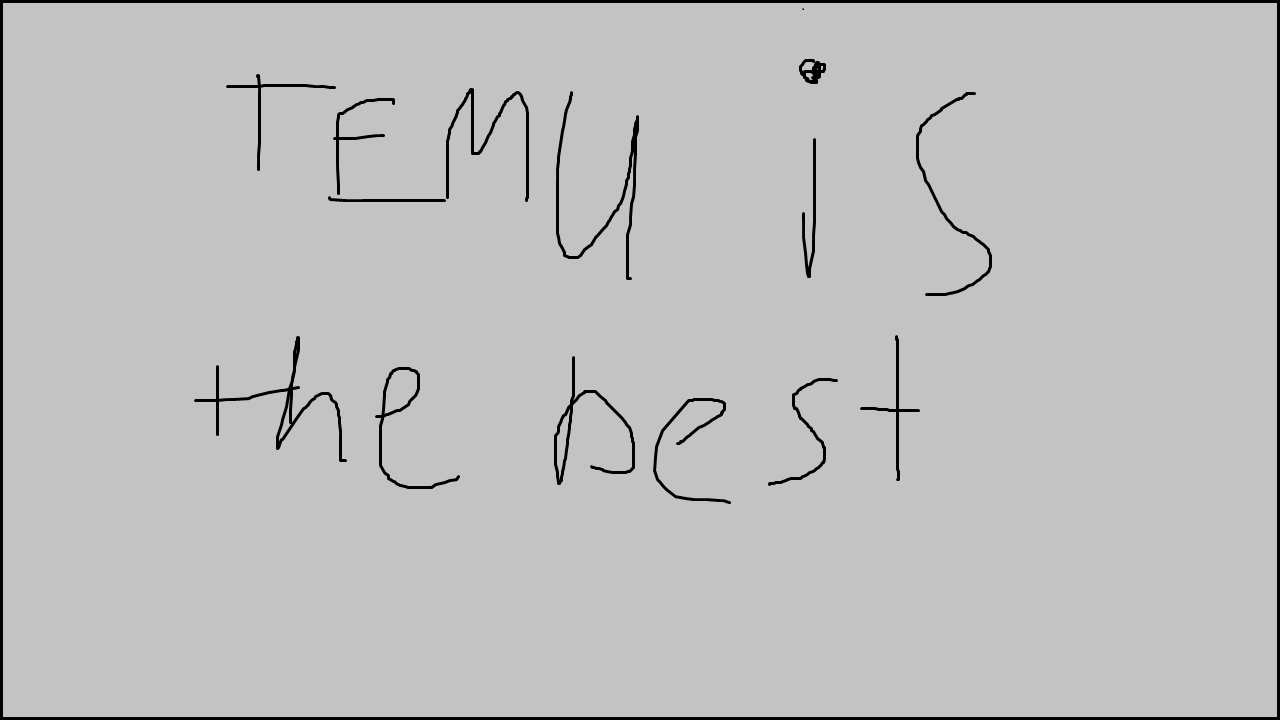 TEMU is
the best